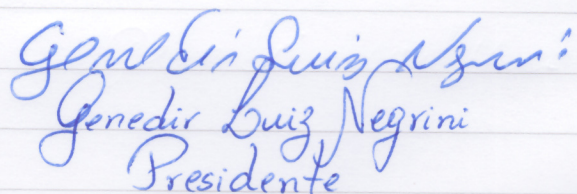 Genedir Luiz Negrini
Genedir Luiz Negrini
Presidente